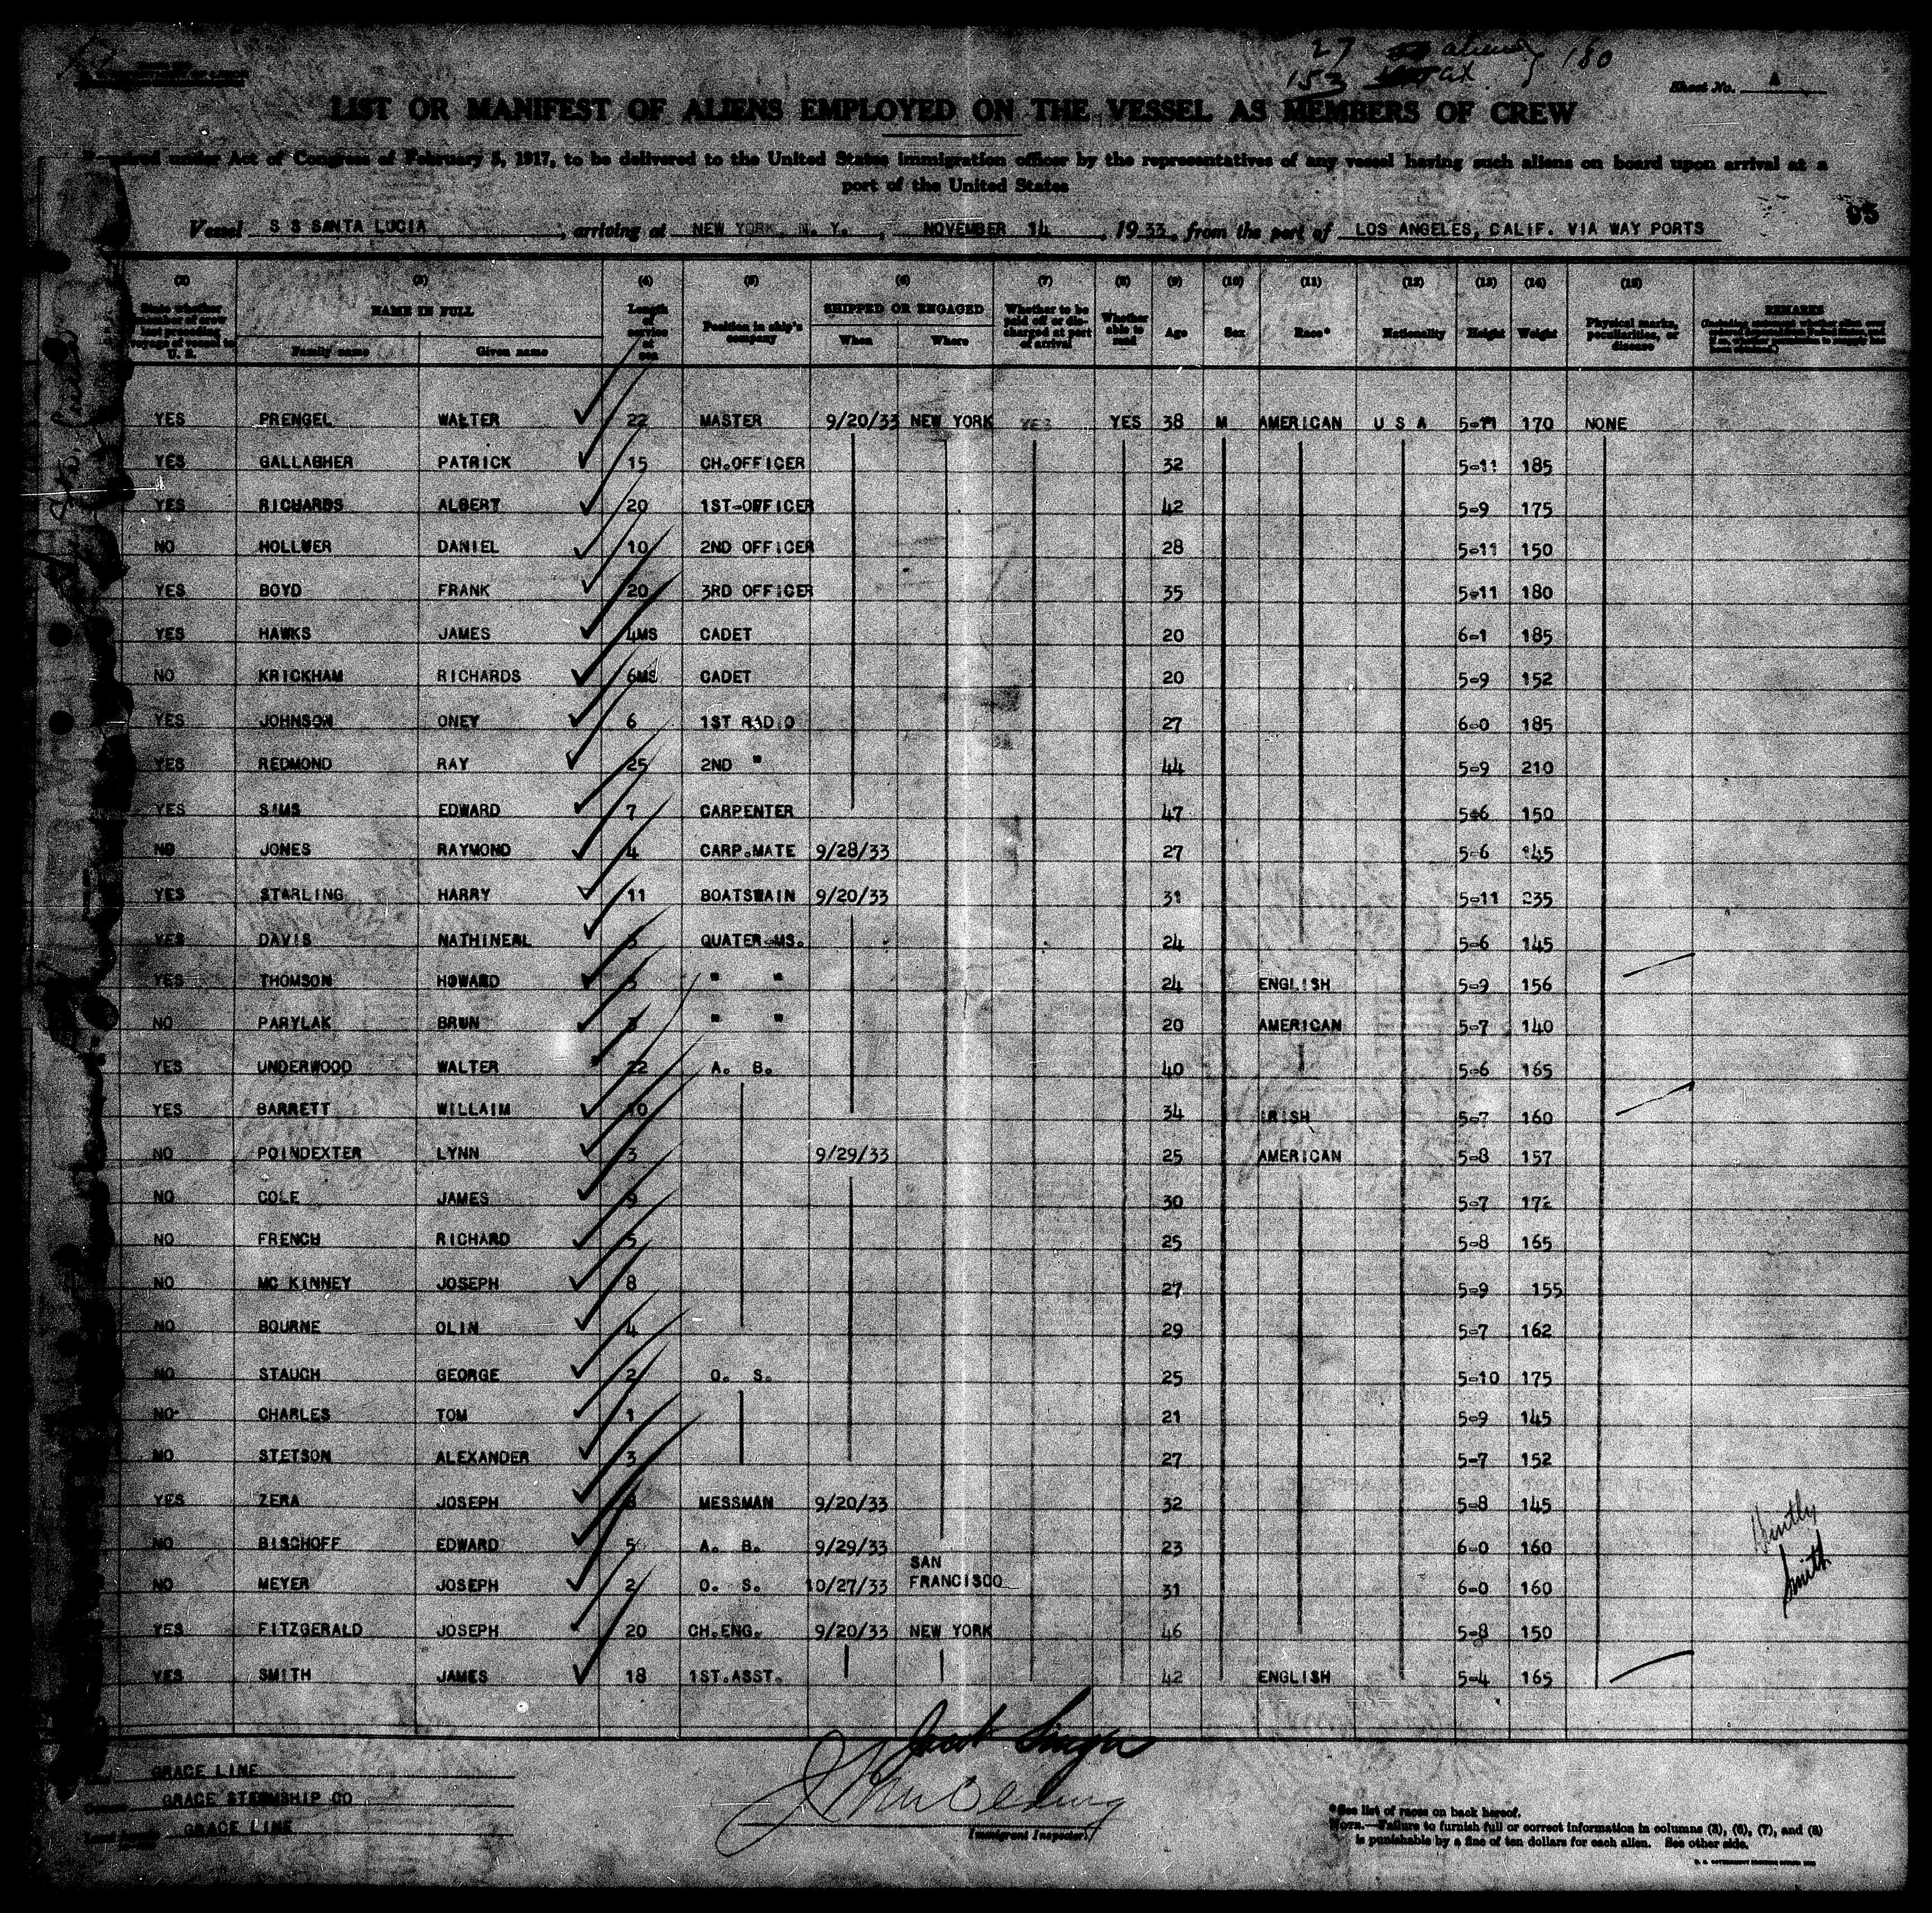 27 aliens } 180
153
Sheet No. A
LIST OR MANIFEST OF ALIENS EMPLOYED ON THE VESSEL AS MEMBERS OF CREW
Required under Act of Congress of February 5, 1917, to be delivered to the United States immigration officer by the representatives of any vessel having such aliens on board upon arrival at a
port of the United States
Vessel S S SANTA LUCIA, arriving at NEW YORK, N. Y., NOVEMBER 14, 1933, from the port of LOS ANGELES, CALIF. VIA WAY PORTS
(2) (3) (4) (5) (6) (7) (8) (9) (10) (11) (12) (13) (14) (15)
NAME IN FULL Family name Given name Length of service at sea Position in ship's company SHIPPED OR ENGAGED When Where Whether to be paid off or discharged at port of arrival Whether able to read Age Sex Race* Nationality Height Weight Physical marks, peculiarities, or disease REMARKS
YES PRENGEL WALTER 22 MASTER 9/20/33 NEW YORK YES YES 38 M AMERICAN U S A 5-11 170 NONE
YES GALLAGHER PATRICK 15 CH.OFFICER 32 5-11 185
YES RICHARDS ALBERT 20 1ST-OFFICER 42 5-9 175
NO HOLLMER DANIEL 10 2ND OFFICER 28 5-11 150
YES BOYD FRANK 20 3RD OFFICER 35 5-11 180
YES HAWKS JAMES 4MS CADET 20 6-1 185
NO KRICKHAM RICHARDS 6MS CADET 20 5-9 152
YES JOHNSON ONEY 6 1ST RADIO 27 6-0 185
YES REDMOND RAY 25 2ND " 44 5-9 210
YES SIMS EDWARD 7 CARPENTER 47 5-6 150
NO JONES RAYMOND 4 CARP.MATE 9/28/33 27 5-6 145
YES STARLING HARRY 11 BOATSWAIN 9/20/33 31 5-11 235
YES DAVIS NATHINEAL QUATER-MS. 24 5-6 145
YES THOMSON HOWARD " " 24 ENGLISH 5-9 156
NO PARYLAK BRUN 3 " " 20 AMERICAN 5-7 140
YES UNDERWOOD WALTER 22 A. B. 40 5-6 165
YES BARRETT WILLAIM 10 34 IRISH 5-7 160
NO POINDEXTER LYNN 3 9/29/33 25 AMERICAN 5-8 157
NO COLE JAMES 9 30 5-7 172
NO FRENCH RICHARD 5 25 5-8 165
NO MC KINNEY JOSEPH 8 27 5-9 155
NO BOURNE OLIN 4 29 5-7 162
NO STAUCH GEORGE 2 O. S. 25 5-10 175
NO CHARLES TOM 1 21 5-9 145
NO STETSON ALEXANDER 3 27 5-7 152
YES ZERA JOSEPH MESSMAN 9/20/33 32 5-8 145
NO BISCHOFF EDWARD 5 A. B. 9/29/33 23 6-0 160
NO MEYER JOSEPH 2 O. S. 10/27/33 SAN FRANCISCO 31 6-0 160
YES FITZGERALD JOSEPH 20 CH.ENG. 9/20/33 NEW YORK 46 5-8 150
YES SMITH JAMES 18 1ST.ASST. 42 ENGLISH 5-4 165
Smith
GRACE LINE
GRACE STEAMSHIP CO
GRACE LINE
Immigrant Inspector.
*See list of races on back hereof.
NOTE.—Failure to furnish full or correct information in columns (3), (6), (7), and (8)
is punishable by a fine of ten dollars for each alien. See other side.